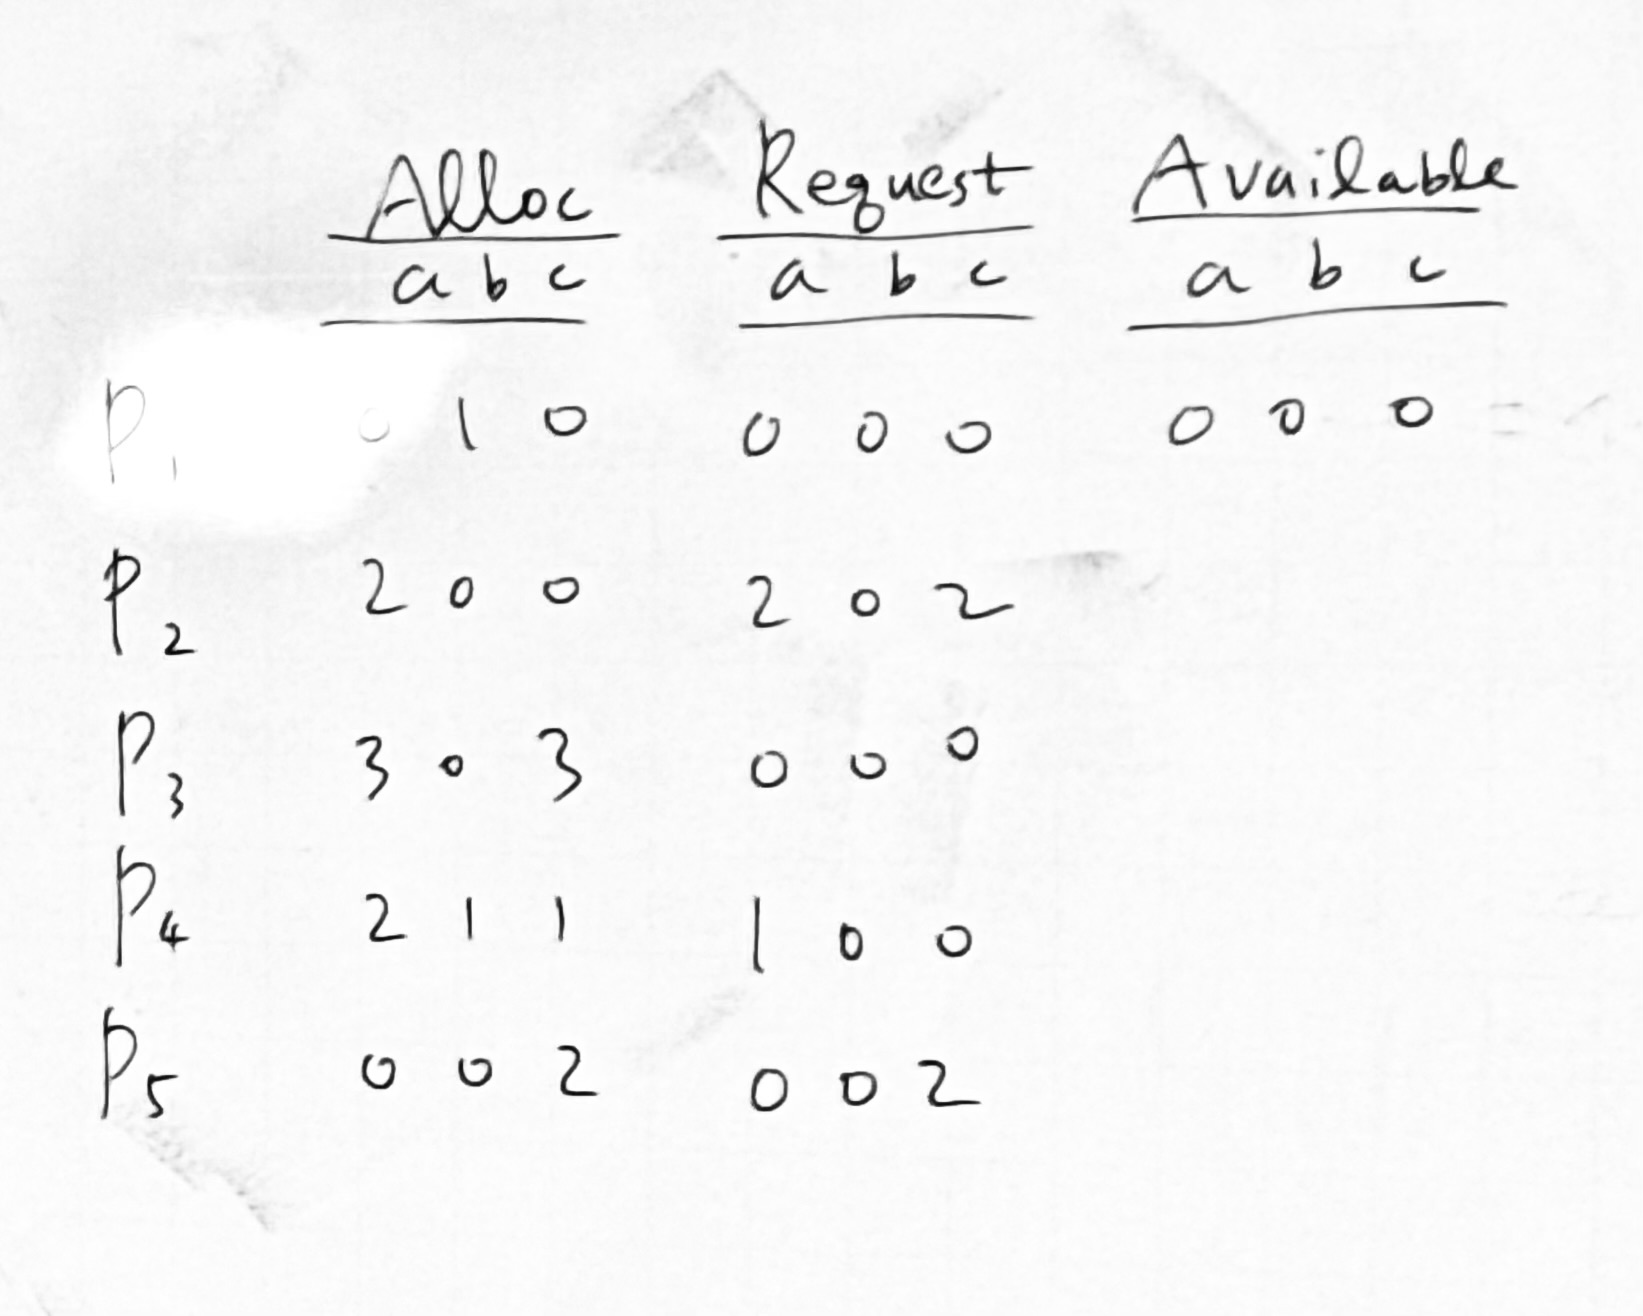 Alloc Request Available
a b c a b c a b c
P1 0 1 0 0 0 0 0 0 0
P2 2 0 0 2 0 2
P3 3 0 3 0 0 0
P4 2 1 1 1 0 0
P5 0 0 2 0 0 2